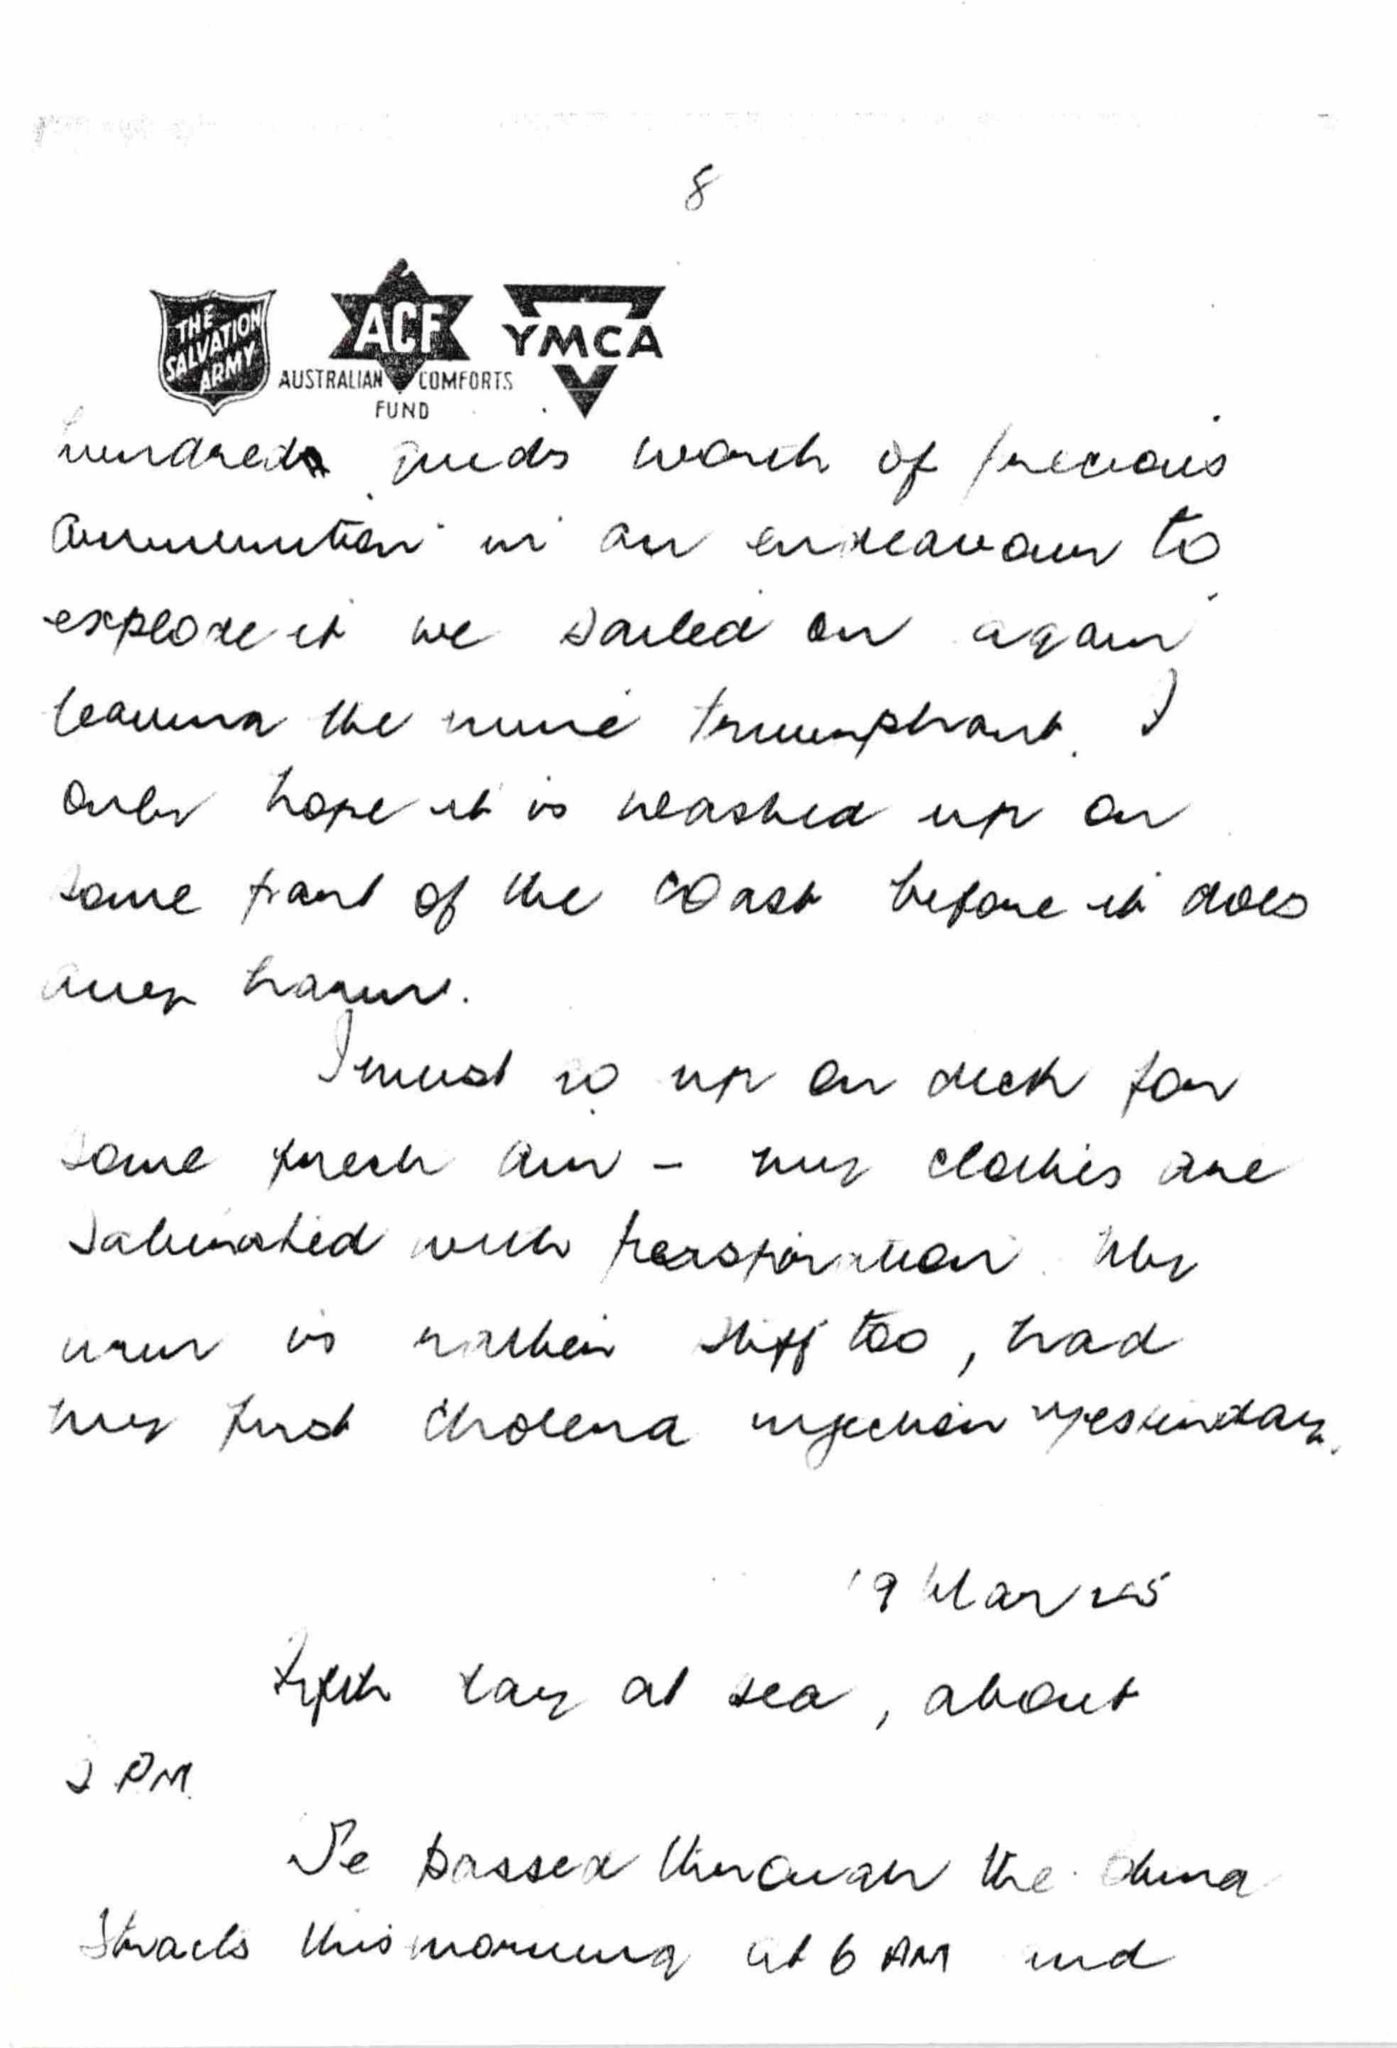 8
THE SALVATION ARMY
ACF
AUSTRALIAN COMFORTS FUND
YMCA
hundreds quids worth of precious
ammunition in an endeavour to
explode it we sailed on again
leaving the mine triumphant. I
only hope it is washed up on
some part of the coast before it does
any harm.
I must go up on deck for
some fresh air – my clothes are
saturated with perspiration. My
arm is rather stiff too, had
my first cholera injection yesterday.
19 Mar 45
Fifth day at sea, about
2 PM.
We passed through the China
Straits this morning at 6 AM and